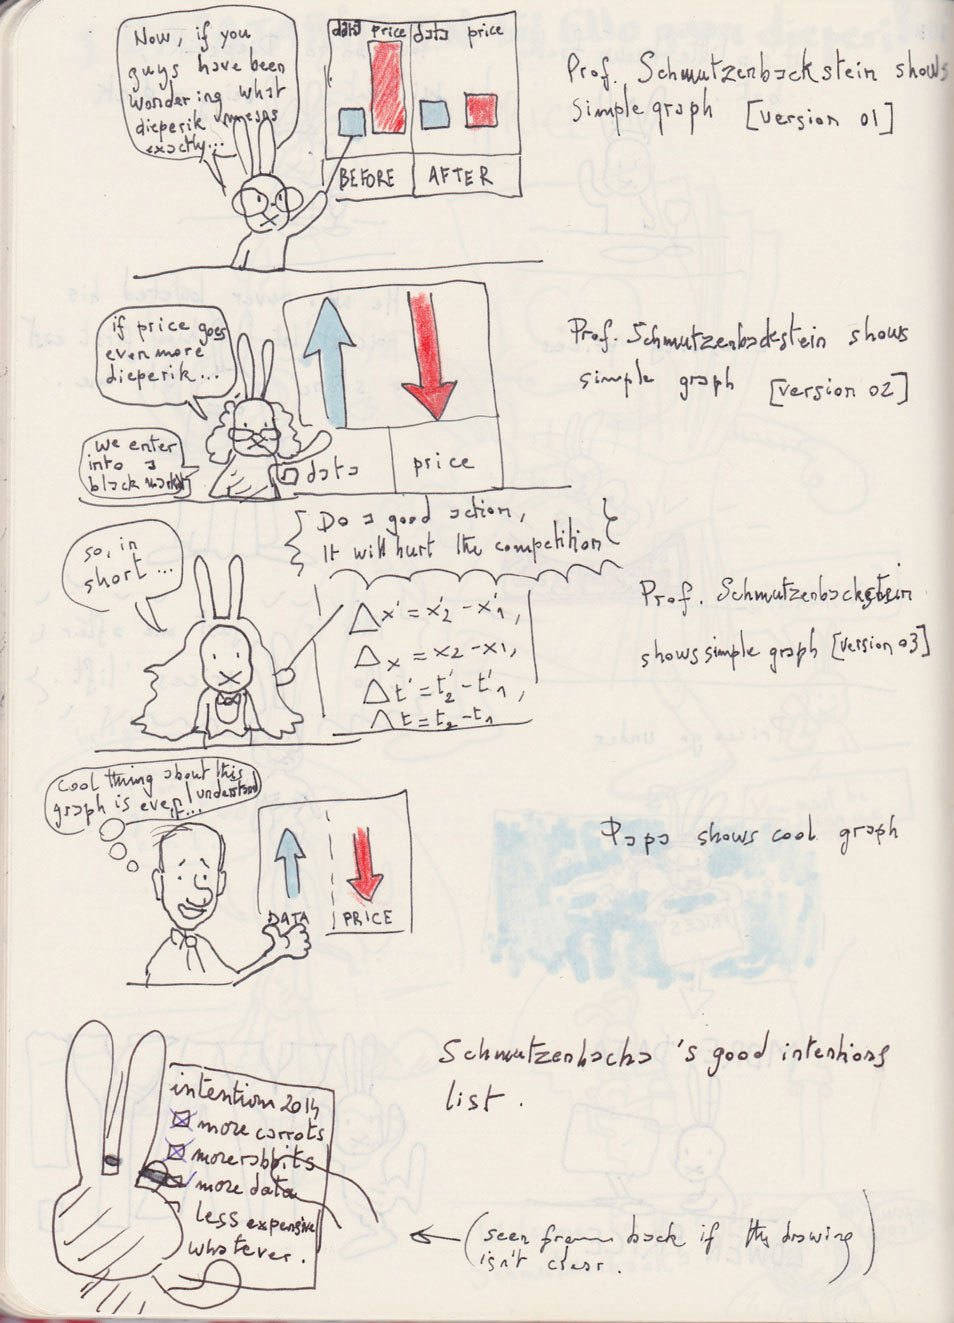 Now, if you
guys have been
wondering what
dieperik means
exactly...
data price data price
BEFORE AFTER
Prof. Schmutzenbackstein shows
simple graph [version 01]
if price goes
even more
dieperik...
we enter
into a
black market
data
price
Prof. Schmutzenbackstein shows
simple graph [version 02]
Do a good action,
It will hurt the competition
so, in
short...
Δx' = x'2 - x'1,
Δx = x2 - x1,
Δt' = t'2 - t'1,
Δt = t2 - t1
Prof. Schmutzenbackstein
shows simple graph [version 03]
cool thing about this
graph is even I understand
it...
DATA PRICE
Papa shows cool graph
Schmutzenbacha's good intentions
list.
intention 2014
more carrots
more rabbits
more data
less expensive
whatever.
(seen from back if the drawing
isn't clear.)